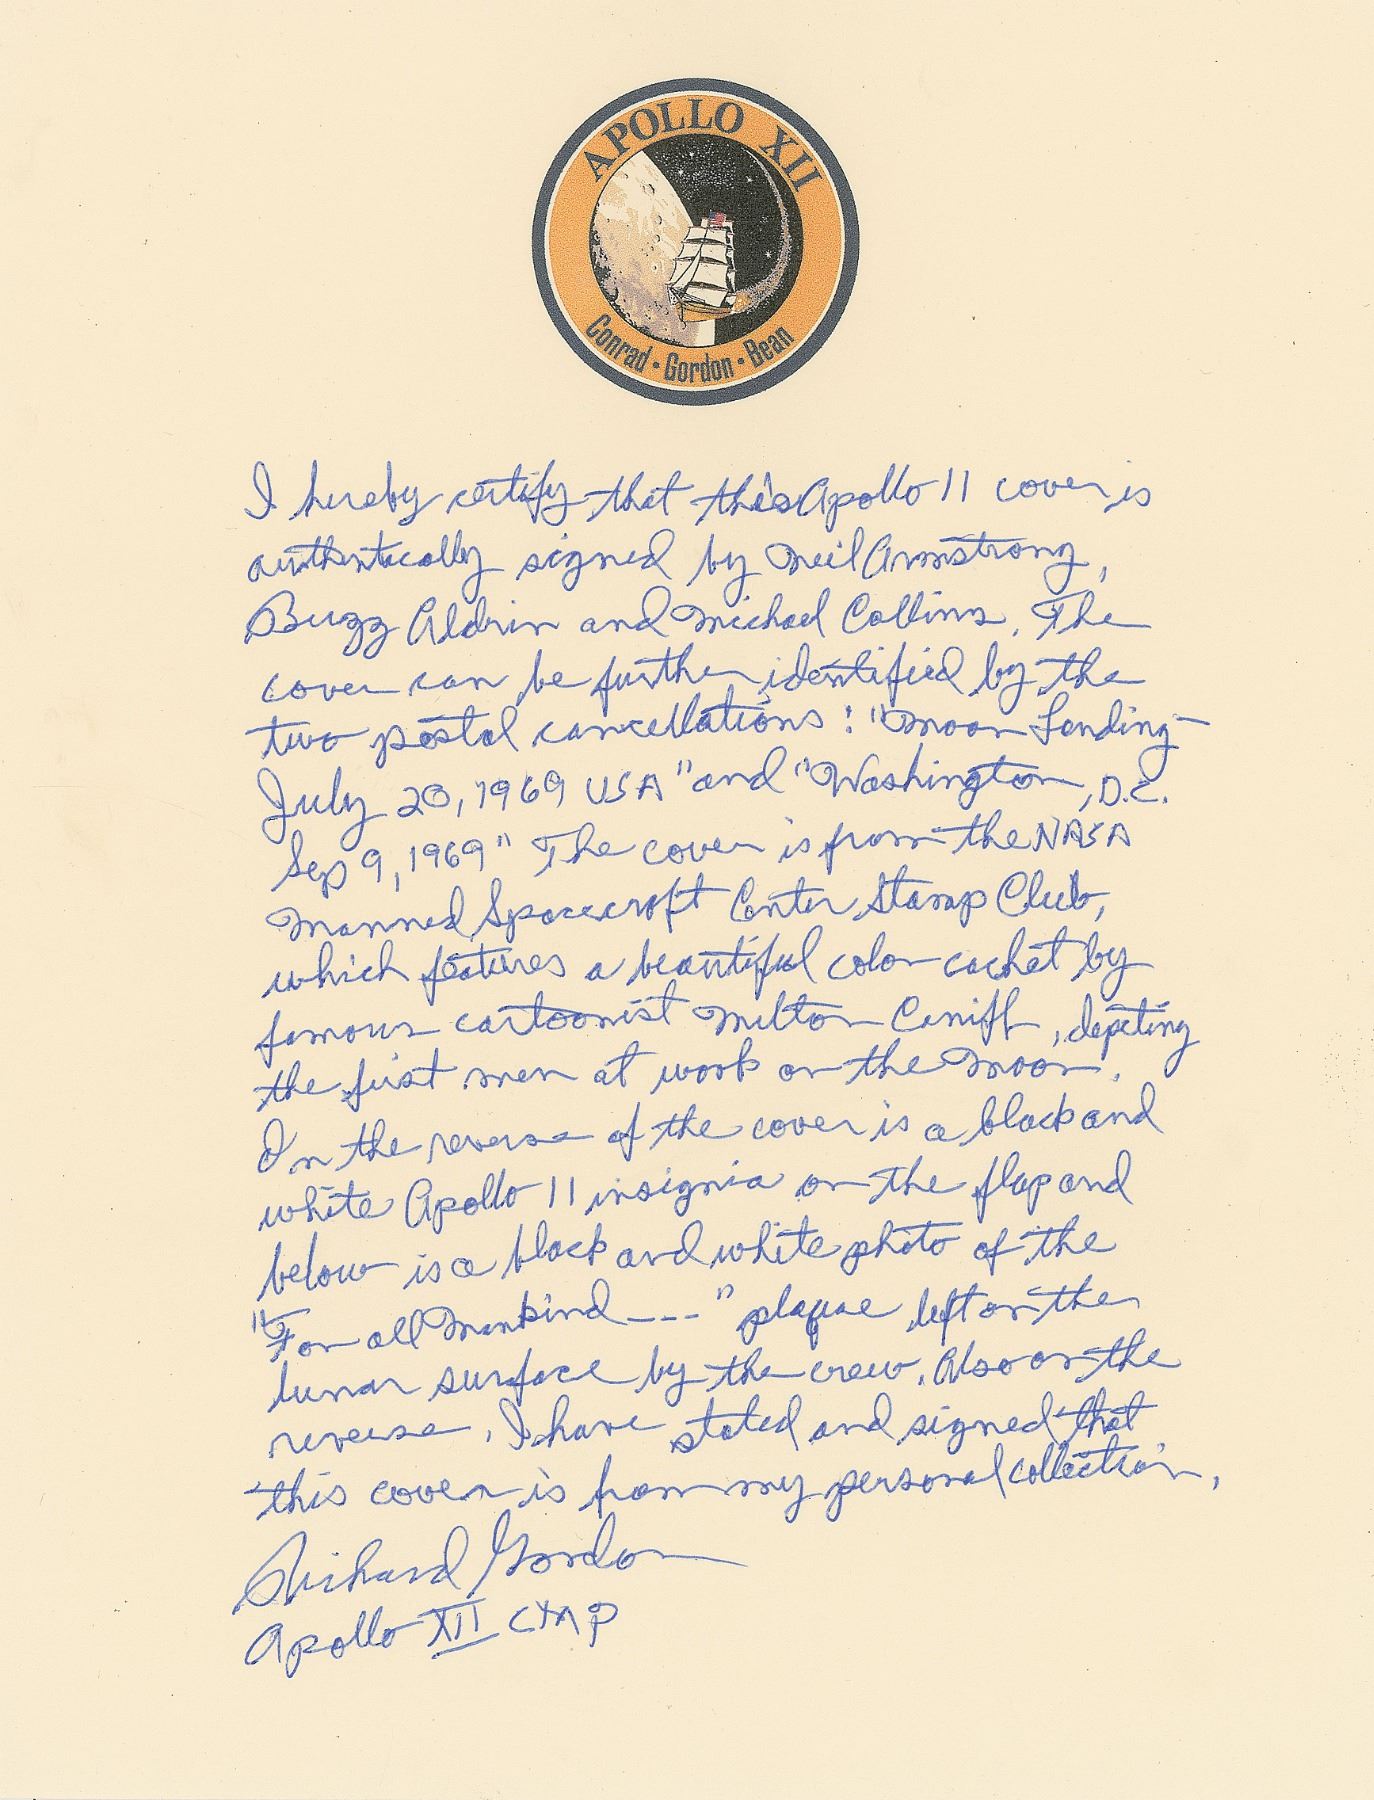 APOLLO XII
Conrad · Gordon · Bean
I hereby certify that this Apollo 11 cover is
authentically signed by Neil Armstrong,
Buzz Aldrin and Michael Collins. The
cover can be further identified by the
two postal cancellations: "Moon Landing
July 20, 1969 USA" and "Washington, D.C.
Sep 9, 1969" The cover is from the NASA
Manned Spacecraft Center Stamp Club,
which features a beautiful color cachet by
famous cartoonist Milton Caniff, depicting
the first men at work on the Moon.
On the reverse of the cover is a black and
white Apollo 11 insignia on the flap and
below is a black and white photo of the
"For all Mankind ---" plaque left on the
lunar surface by the crew. Also on the
reverse, I have stated and signed that
this cover is from my personal collection.
Richard Gordon
Apollo XII CMP